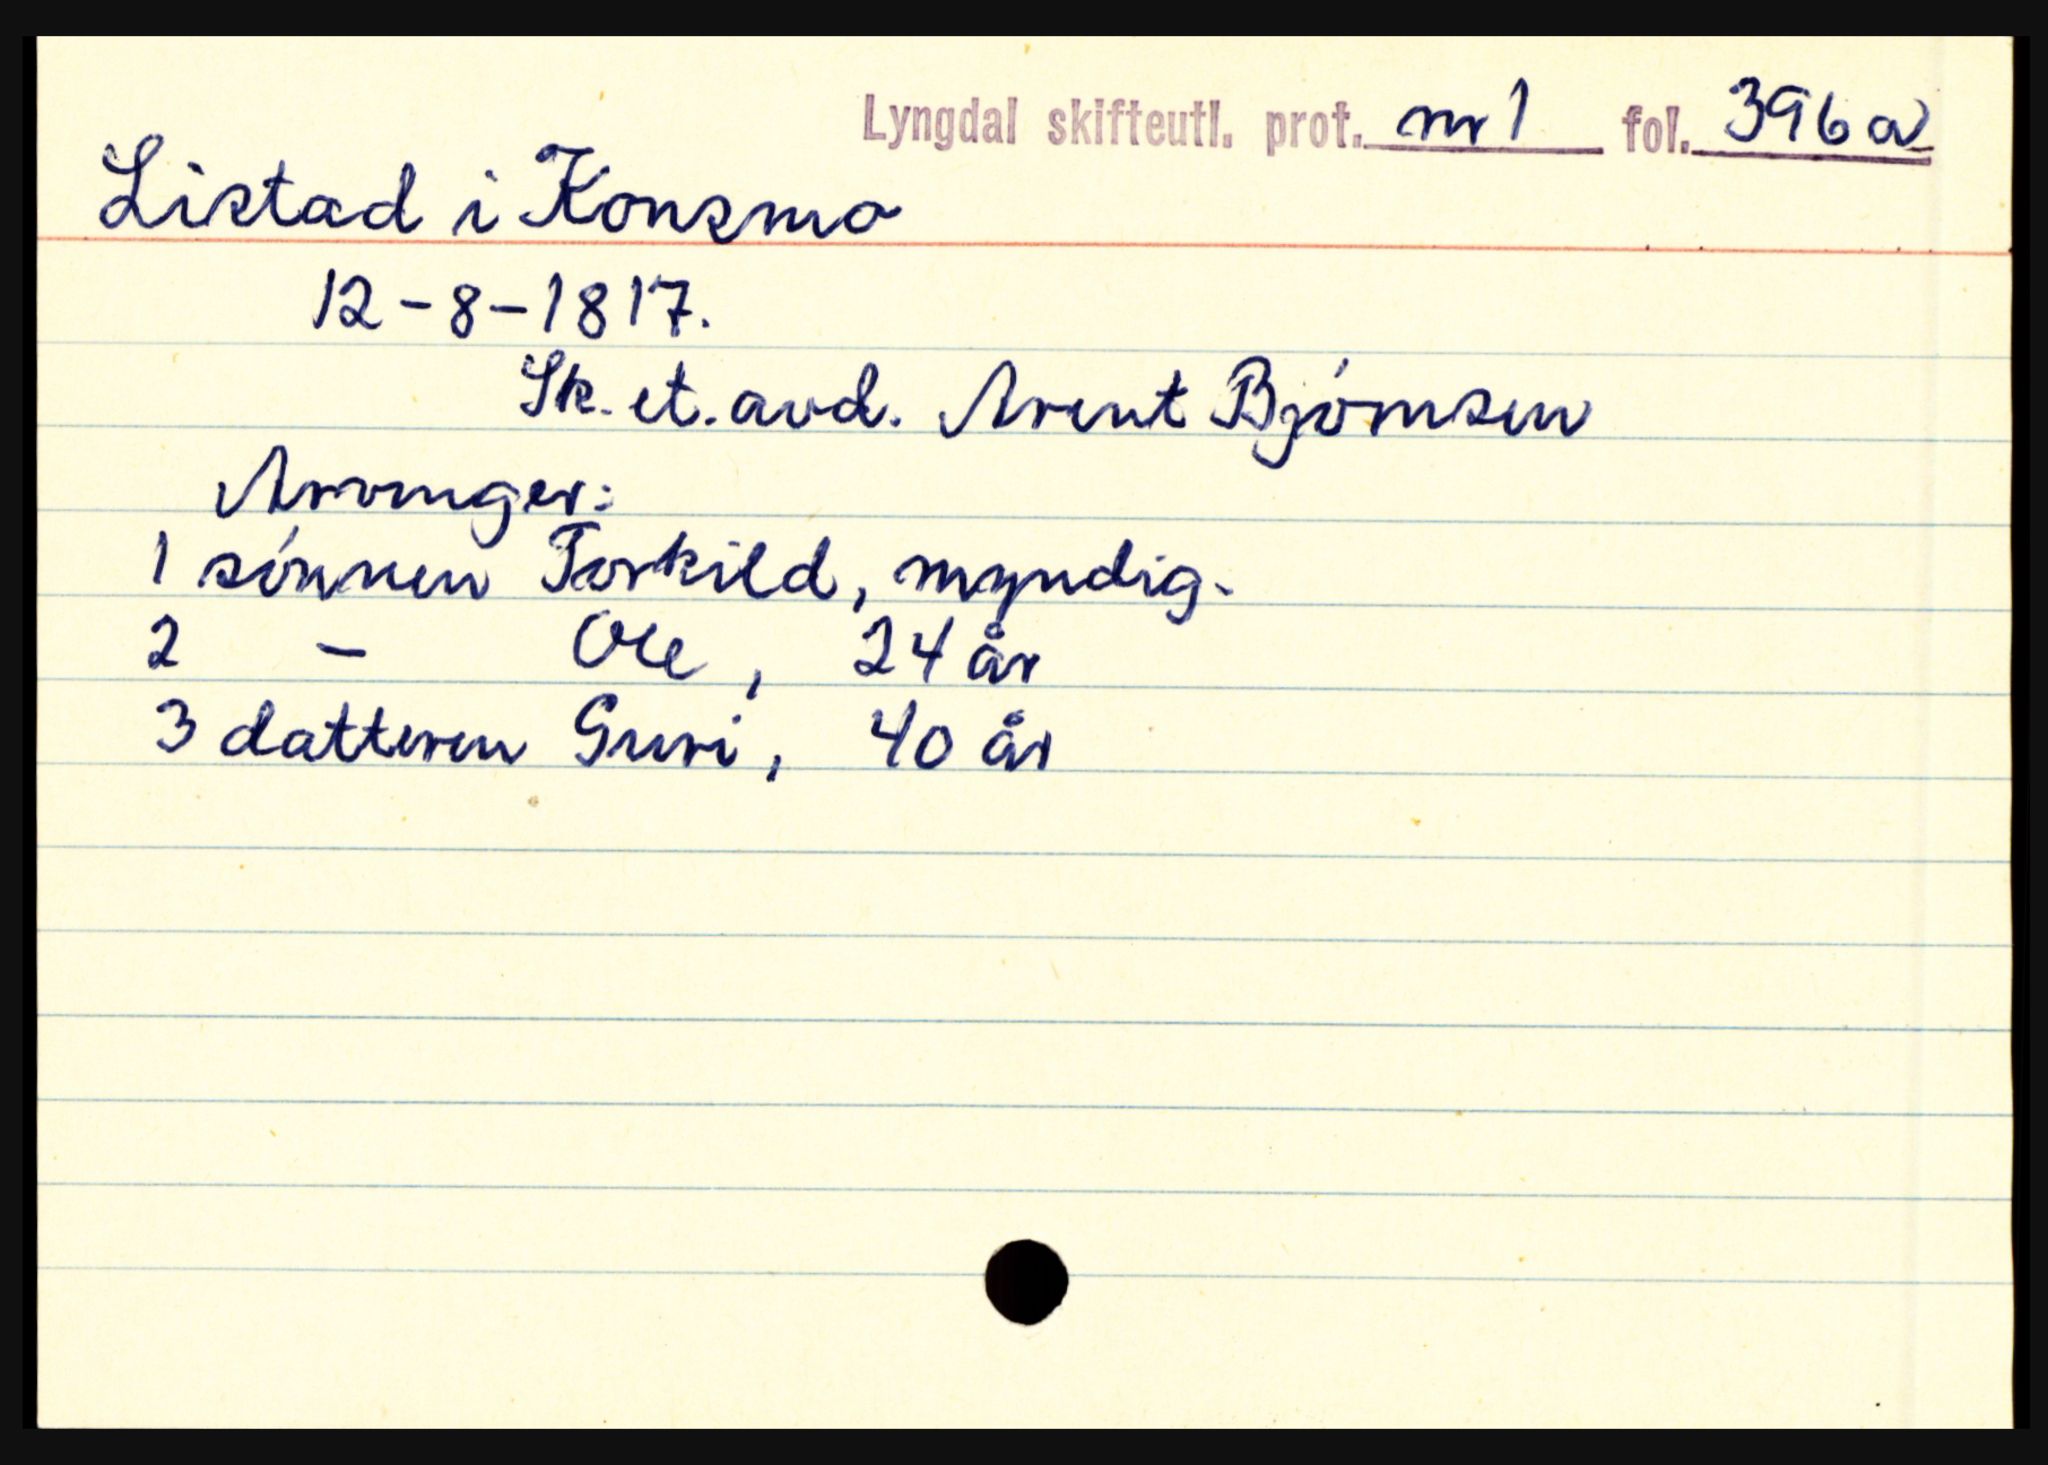 Lyngdal skifteutl. prot. nr 1 fol. 396a
Listad i Konsmo
12-8-1817.
Sk. et. avd. Arent Bjørnsen
Arvinger:
1 sønnen Torkild, myndig.
2 - Ole, 24 år
3 datteren Guri, 40 år